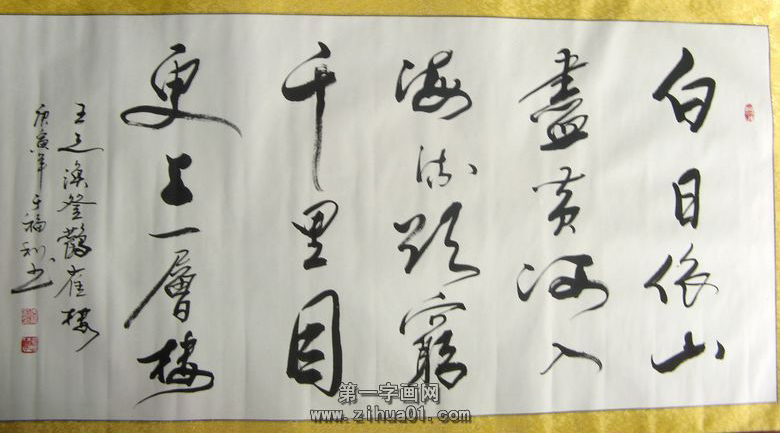 白日依山
盡黄河入
海流欲窮
千里目
更上一層樓
王之渙登鸛雀樓
庚寅年于福利书
第一字画网
www.zihua01.com